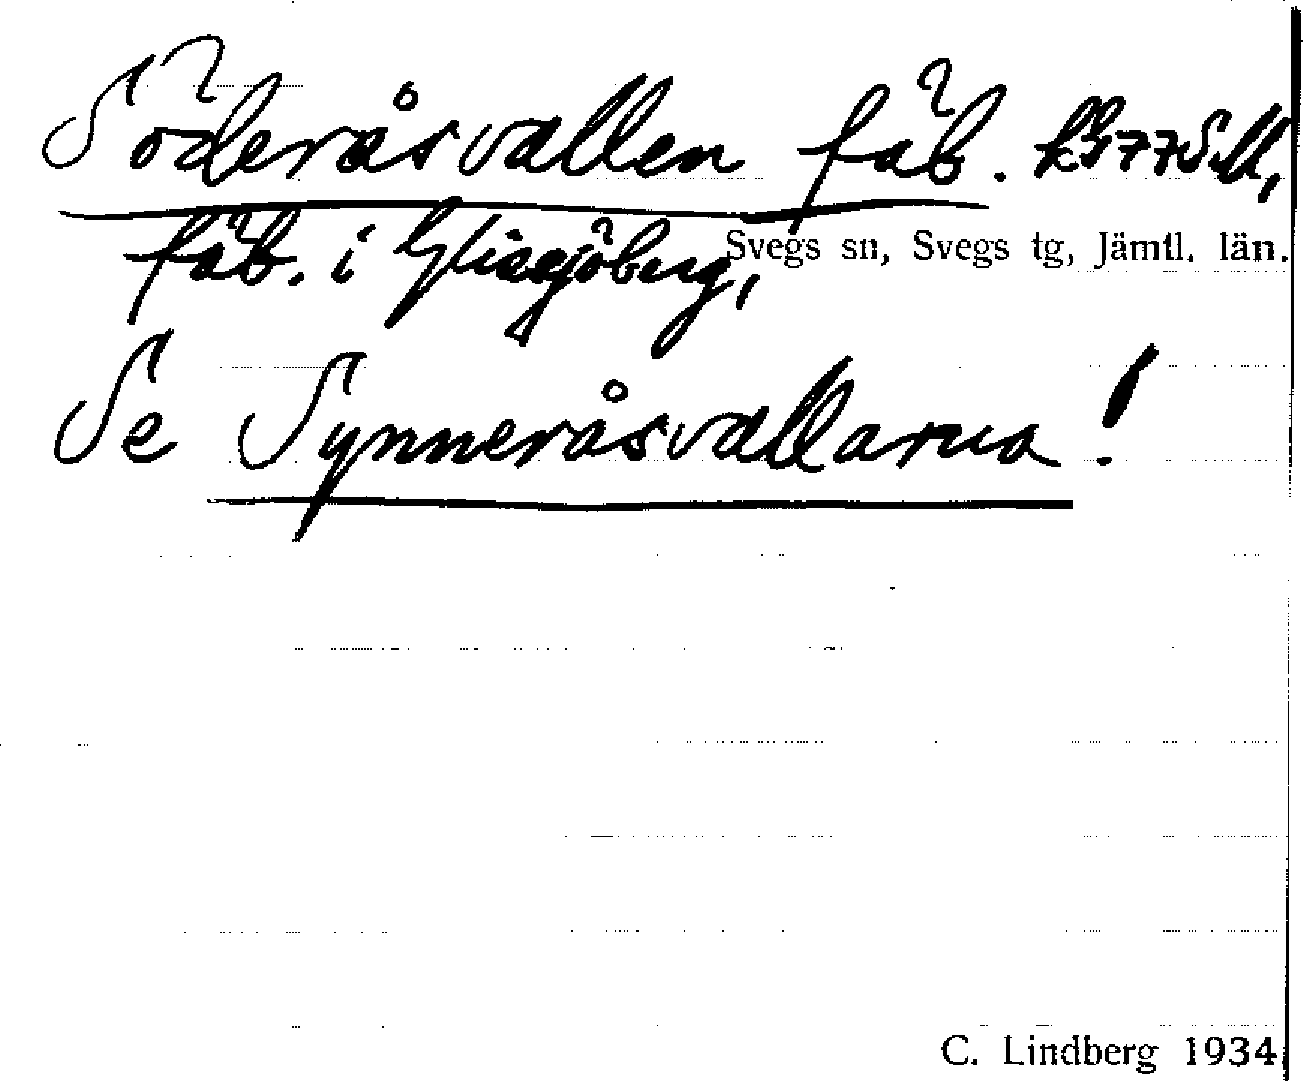 Söderåsvallen fäb.
fäb. i Glissjöberg,
Svegs sn, Svegs tg, Jämtl. län.
Se Synneråsvallarna!
C. Lindberg 1934